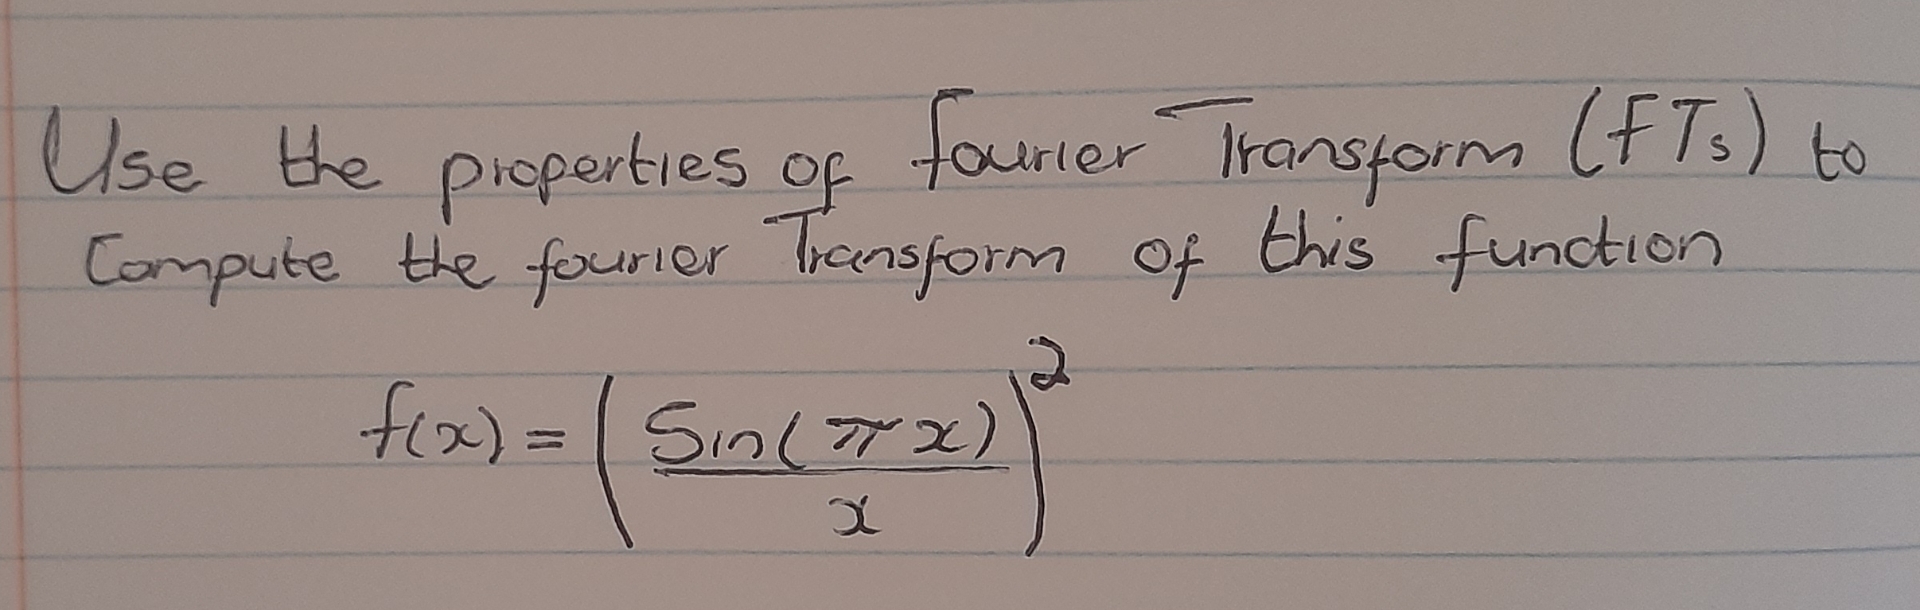 Use the properties of fourier Transform (FTs) to
Compute the fourier Transform of this function
f(x) = (Sin(πx)/x)²